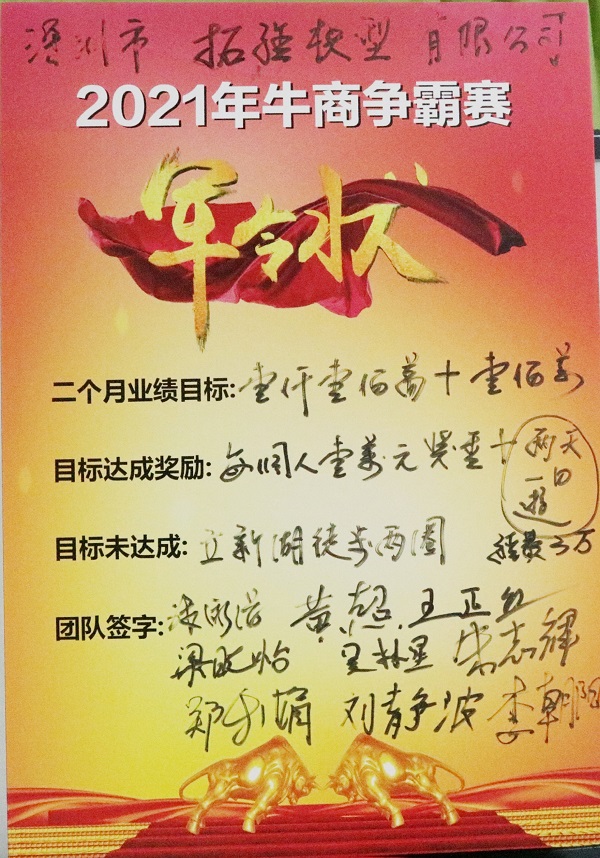 深圳市 拓强模型有限公司
2021年牛商争霸赛
军令状
二个月业绩目标:壹仟壹佰萬+壹佰萬
目标达成奖励:每個人壹萬元奖金+
两天
一日
遊
目标未达成:立新湖徒步两圈 
经费3万
团队签字: 黄超 王正
梁晓怡 吴林星 志輝
郑利娟 刘静波 李朝阳